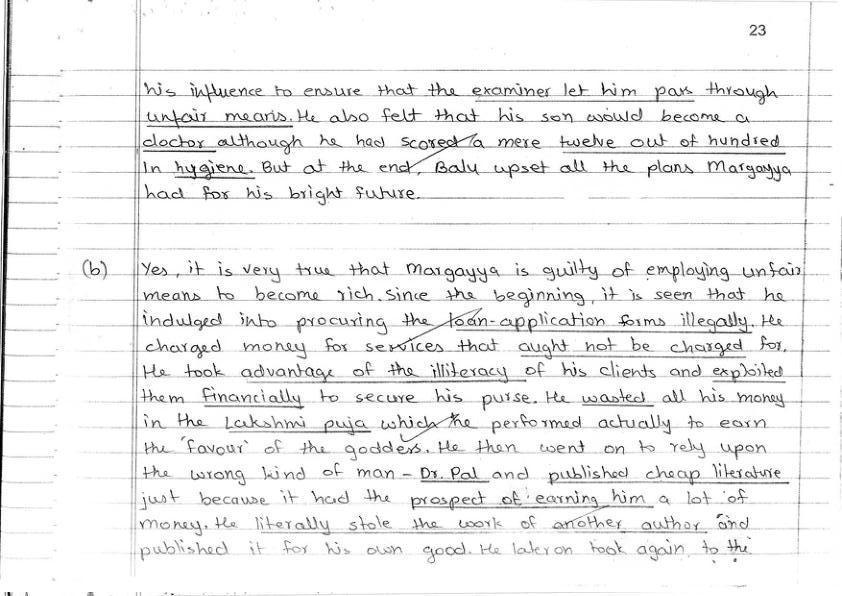 23
his influence to ensure that the examiner let him pass through
unfair means. He also felt that his son would become a
doctor although he had scored a mere twelve out of hundred
In hygiene. But at the end, Balu upset all the plans Margayya
had for his bright future.
(b) Yes, it is very true that Margayya is guilty of employing unfair
means to become rich. Since the beginning, it is seen that he
indulged into procuring the loan-application forms illegally. He
charged money for services that aught not be charged for.
He took advantage of the illiteracy of his clients and exploited
them financially to secure his purse. He wasted all his money
in the Lakshmi puja which he performed actually to earn
the 'favour' of the goddess. He then went on to rely upon
the wrong kind of man - Dr. Pal and published cheap literature
just because it had the prospect of earning him a lot of
money. He literally stole the work of another author and
published it for his own good. He later on took again to the